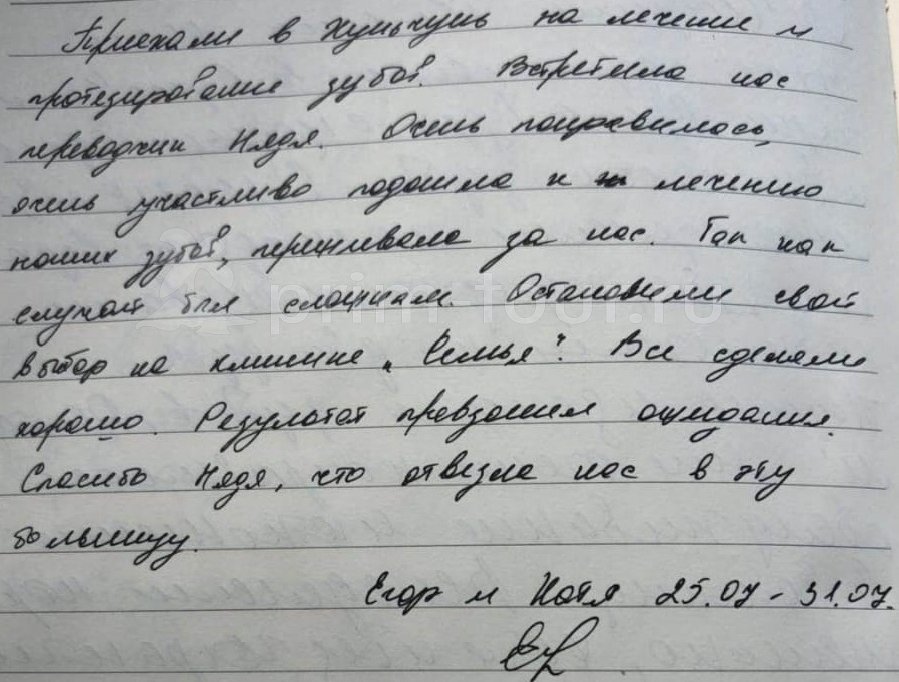 Приехали в Хуньчунь на лечение и
протезирование зубов. Встретила нас
переводчик Надя. Очень понравилось,
очень участливо подошла к лечению
наших зубов, переживала за нас. Так как
случай был сложным. Остановили свой
выбор на клинике „Семья". Все сделали
хорошо. Результат превзошел ожидания.
Спасибо Надя, что отвезла нас в эту
больницу.
Егор и Катя 25.07 - 31.07.
prim-tour.ru